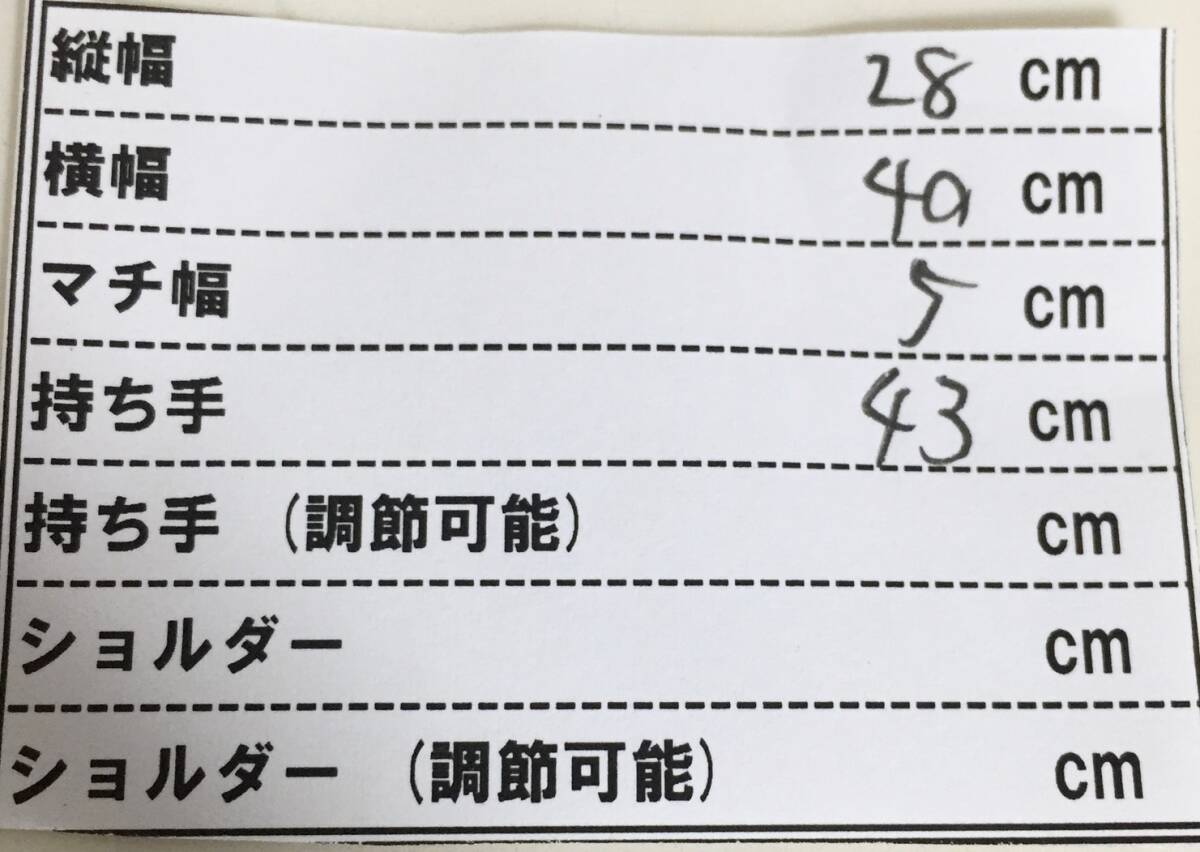 縦幅 28 cm
横幅 40 cm
マチ幅 5 cm
持ち手 43 cm
持ち手 (調節可能) cm
ショルダー cm
ショルダー (調節可能) cm